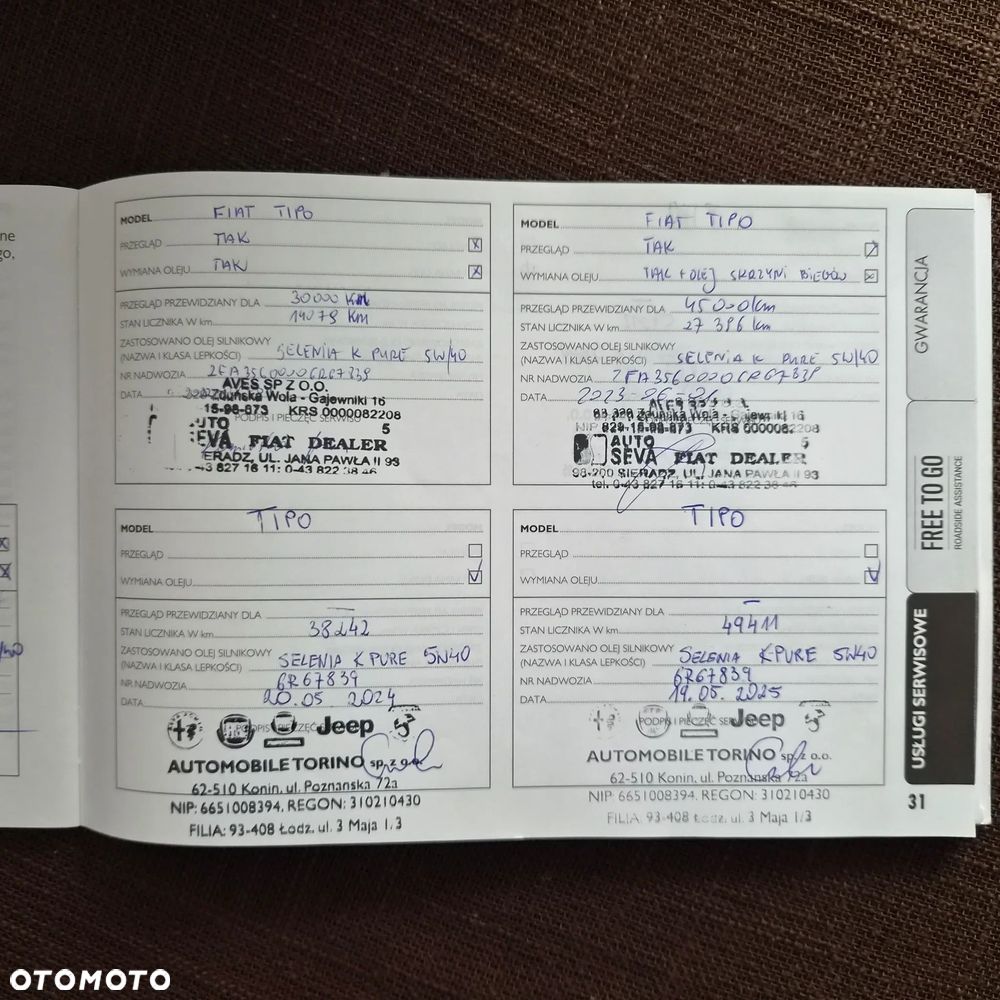 ne
go,
MODEL FIAT TIPO
PRZEGLĄD TAK X
WYMIANA OLEJU TAK X
PRZEGLĄD PRZEWIDZIANY DLA 30000 KM
STAN LICZNIKA W km 14079 KM
ZASTOSOWANO OLEJ SILNIKOWY
(NAZWA I KLASA LEPKOŚCI) SELENIA K PURE 5W/40
NR NADWOZIA ZFA3560000 6R67839
DATA
AVES SP Z O.O.
Zduńska Wola - Gajewniki 16
15-98-673 KRS 0000082208
PODPIS I PIECZĘĆ SERWISU
5
UTO
SEVA FIAT DEALER
SIERADZ, UL. JANA PAWŁA II 93
43 827 16 11; 0-43 822 38 46
MODEL FIAT TIPO
PRZEGLĄD TAK
WYMIANA OLEJU TAK + OLEJ SKRZYNI BIEGÓW
PRZEGLĄD PRZEWIDZIANY DLA 45000km
STAN LICZNIKA W km 27 396 km
ZASTOSOWANO OLEJ SILNIKOWY
(NAZWA I KLASA LEPKOŚCI) SELENIA K PURE 5W/40
NR NADWOZIA ZFA3560000 6R67839
DATA 2023-06-
AVES
Zduńska Wola - Gajewniki 16
NIP 829-15-98-673 KRS 0000082208
5
AUTO
SEVA FIAT DEALER
98-200 SIERADZ, UL. JANA PAWŁA II 93
tel. 0-43 827 16 11; 0-43 822 38 46
MODEL TIPO
PRZEGLĄD
WYMIANA OLEJU V
PRZEGLĄD PRZEWIDZIANY DLA —
STAN LICZNIKA W km 38242
ZASTOSOWANO OLEJ SILNIKOWY
(NAZWA I KLASA LEPKOŚCI) SELENIA K PURE 5W40
NR NADWOZIA 6R67839
DATA 20.05.2024
PODPIS I PIECZĘĆ
Jeep
AUTOMOBILE TORINO sp. z o.o.
62-510 Konin, ul. Poznańska 72a
NIP: 6651008394, REGON: 310210430
FILIA: 93-408 Łódź, ul. 3 Maja 1/3
MODEL TIPO
PRZEGLĄD
WYMIANA OLEJU V
PRZEGLĄD PRZEWIDZIANY DLA —
STAN LICZNIKA W km 49411
ZASTOSOWANO OLEJ SILNIKOWY
(NAZWA I KLASA LEPKOŚCI) SELENIA K PURE 5W40
NR NADWOZIA 6R67839
DATA 19.05.2025
PODPIS I PIECZĘĆ
Jeep
AUTOMOBILE TORINO sp. z o.o.
62-510 Konin, ul. Poznańska 72a
NIP: 6651008394, REGON: 310210430
FILIA: 93-408 Łódź, ul. 3 Maja 1/3
GWARANCJA
FREE TO GO
ROADSIDE ASSISTANCE
USŁUGI SERWISOWE
31
OTOMOTO